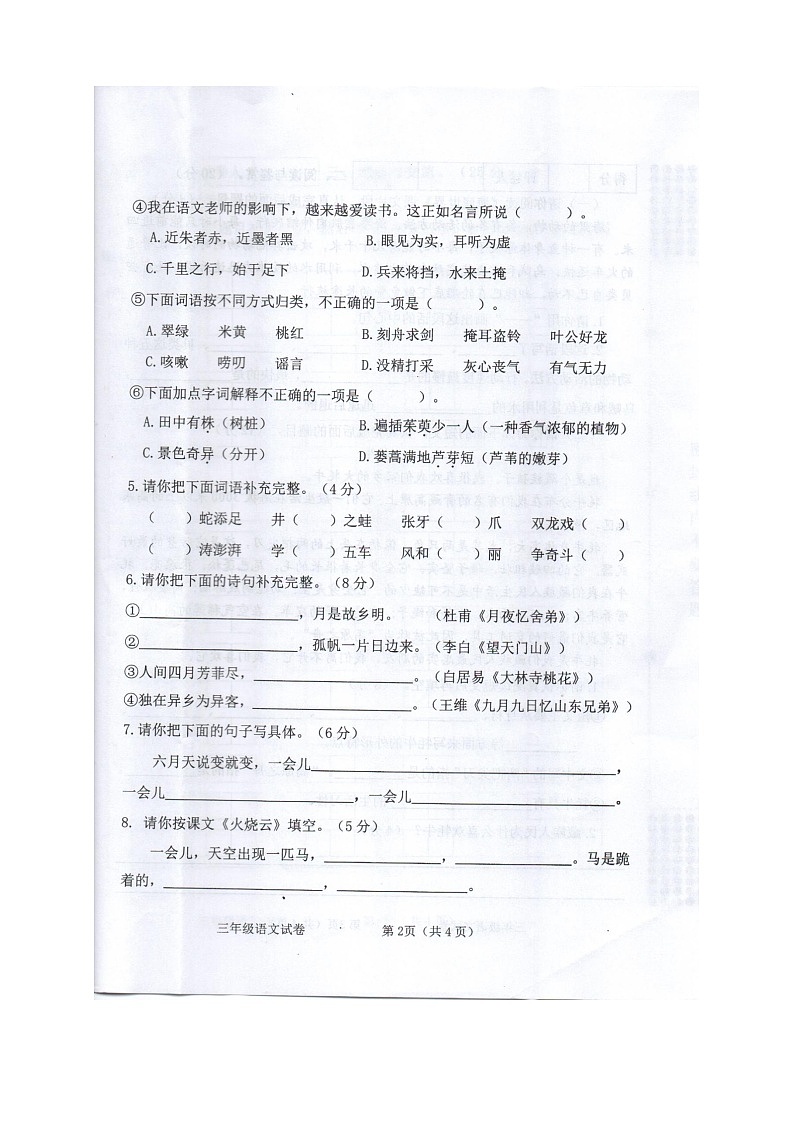 ④我在语文老师的影响下，越来越爱读书。这正如名言所说（　　）。
A.近朱者赤，近墨者黑　　B.眼见为实，耳听为虚
C.千里之行，始于足下　　D.兵来将挡，水来土掩
⑤下面词语按不同方式归类，不正确的一项是（　　）。
A.翠绿　米黄　桃红　　B.刻舟求剑　掩耳盗铃　叶公好龙
C.咳嗽　唠叨　谣言　　D.没精打采　灰心丧气　有气无力
⑥下面加点字词解释不正确的一项是（　　）。
A.田中有株（树桩）　　B.遍插茱萸少一人（一种香气浓郁的植物）
C.景色奇异（分开）　　D.蒌蒿满地芦芽短（芦苇的嫩芽）
5.请你把下面词语补充完整。（4分）
（　　）蛇添足　井（　　）之蛙　张牙（　　）爪　双龙戏（　　）
（　　）涛澎湃　学（　　）五车　风和（　　）丽　争奇斗（　　）
6.请你把下面的诗句补充完整。（8分）
①____________________，月是故乡明。（杜甫《月夜忆舍弟》）
②____________________，孤帆一片日边来。（李白《望天门山》）
③人间四月芳菲尽，____________________。（白居易《大林寺桃花》）
④独在异乡为异客，____________________。（王维《九月九日忆山东兄弟》）
7.请你把下面的句子写具体。（6分）
六月天说变就变，一会儿____________________，
一会儿____________________，一会儿____________________。
8. 请你按课文《火烧云》填空。（5分）
一会儿，天空出现一匹马，______________，______________。马是跪
着的，____________________，________________。
三年级语文试卷　　第2页（共4页）